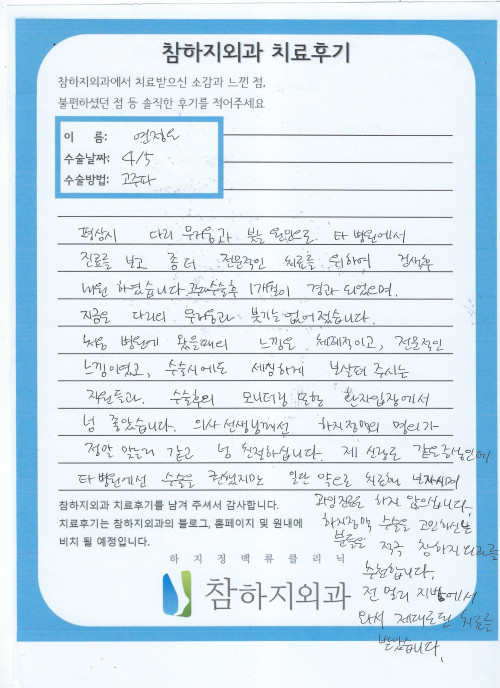 참하지외과 치료후기
참하지외과에서 치료받으신 소감과 느낀 점,
불편하셨던 점 등 솔직한 후기를 적어주세요
이 름:
수술날짜: 4/5
수술방법: 고주파
평상시 다리 무거움과 붓는 원인으로 타 병원에서
진료를 보고 좀더 전문적인 치료를 위하여 검색후
내원 하였습니다. 수술후 1개월이 경과 되었으며,
지금은 다리의 무거움과 붓기는 없어졌습니다.
처음 병원에 왔을때의 느낌은 체계적이고, 전문적인
느낌이였고, 수술시에도 세심하게 보살펴 주시는
직원들과 수술후의 모니터링 또한 환자입장에서
넘 좋았습니다. 의사선생님께선 하지정맥의 명의가
정말 맞는거 같고 넘 친절하십니다. 제 신랑도 같은증상인데
타병원에선 수술을 권했지만 일단 약으로 치료해 보자시며
과잉진료를 하지 않으십니다.
하지정맥 수술을 고민하시는
분들은 적극 참하지외과를
추천합니다.
전 멀리 지방에서
와서 제대로된 치료를
받았습니다.
참하지외과 치료후기를 남겨 주셔서 감사합니다.
치료후기는 참하지외과의 블로그, 홈페이지 및 원내에
비치 될 예정입니다.
하지정맥류클리닉
참하지외과